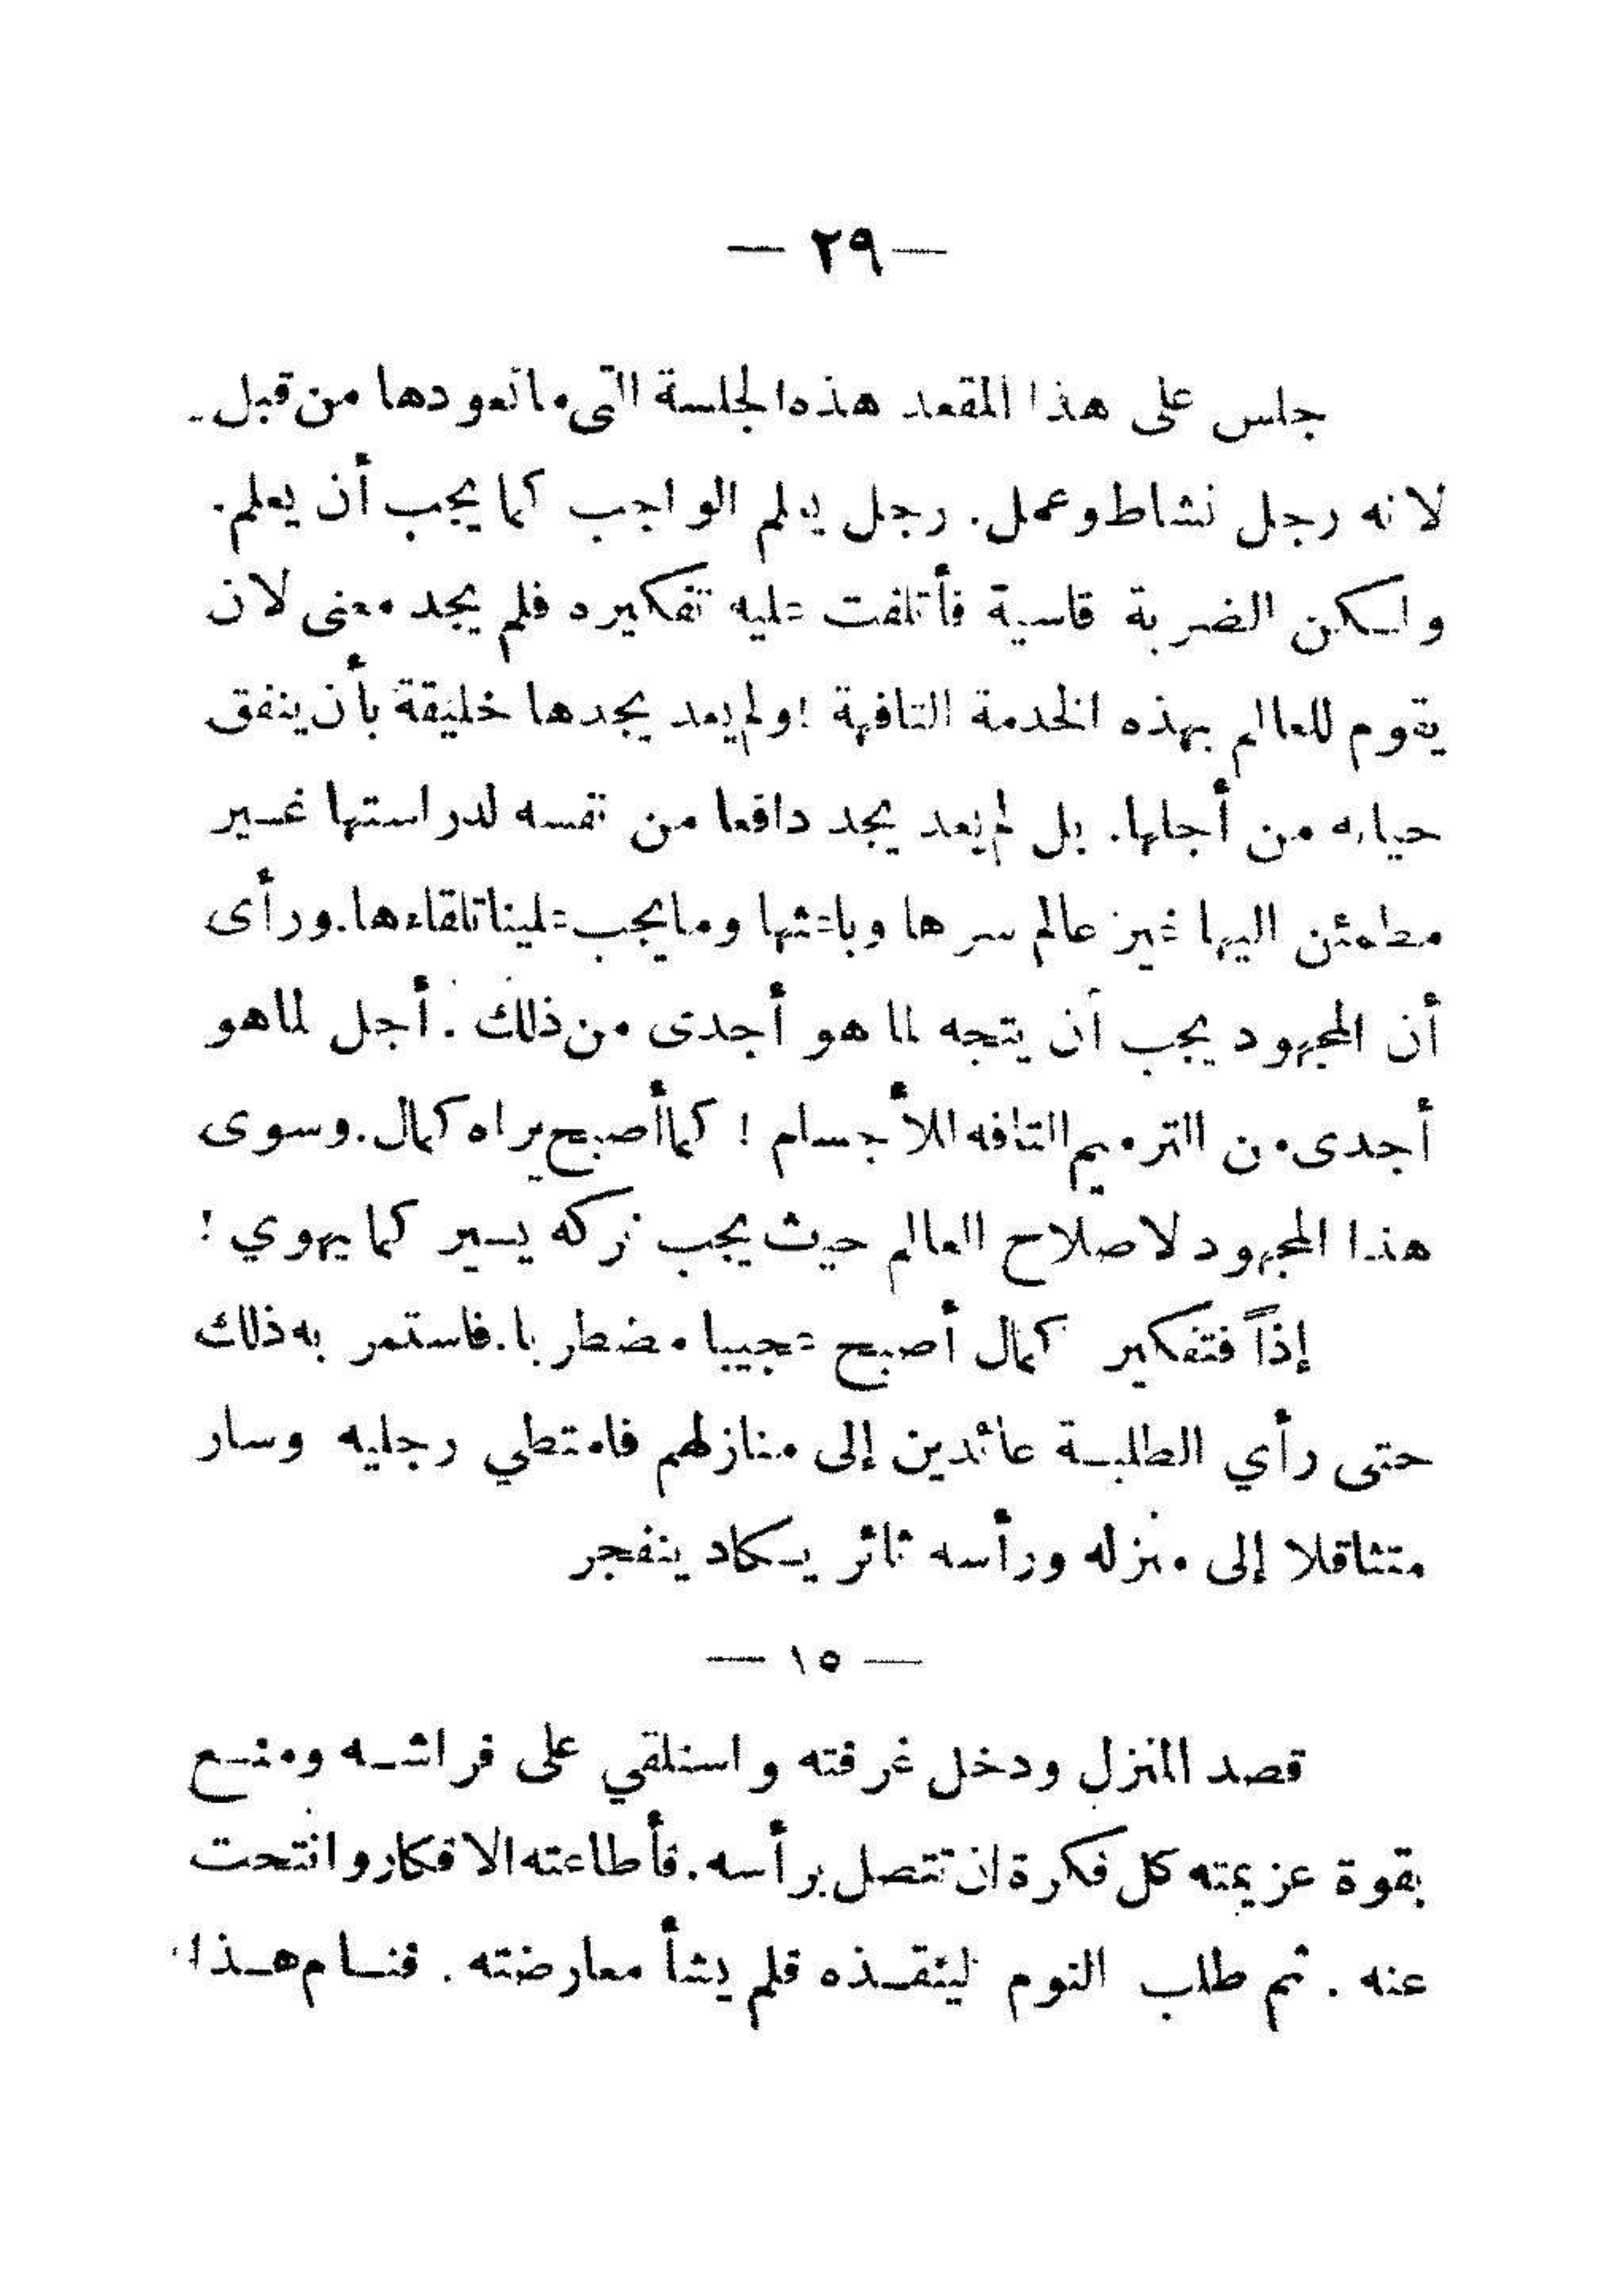 — ٢٩ —
جلس على هذا المقعد هذه الجلسة التى ما تعودها من قبل -
لانه رجل نشاط وعمل. رجل يعلم الواجب كما يجب أن يعلم.
ولكن الضربة قاسية فأتلفت عليه تفكيره فلم يجد معنى لان
يقوم للعالم بهذه الخدمة التافهة ! ولم يعد يجدها خليقة بأن ينفق
حياته من أجلها. بل لم يعد يجد دافعا من نفسه لدراستها غير
مطمئن اليها غير عالم سرها وباعثها وما يجب علينا تلقاءها. ورأى
أن المجهود يجب أن يتجه لما هو أجدى من ذلك . أجل لما هو
أجدى من الترميم التافه للأجسام ! كما أصبح يراه كمال. وسوى
هذا المجهود لاصلاح العالم حيث يجب تركه يسير كما يهوي !
إذاً فتفكير كمال أصبح عجيبا مضطربا. فاستمر به ذلك
حتى رأي الطلبة عائدين إلى منازلهم فامتطي رجليه وسار
متثاقلا إلى منزله ورأسه ثائر يكاد ينفجر
— ١٥ —
قصد المنزل ودخل غرفته واستلقي على فراشه ومنع
بقوة عزيمته كل فكرة ان تتصل برأسه. فأطاعته الافكار وانتحت
عنه . ثم طلب النوم لينقذه فلم يشأ معارضته . فنام هذا